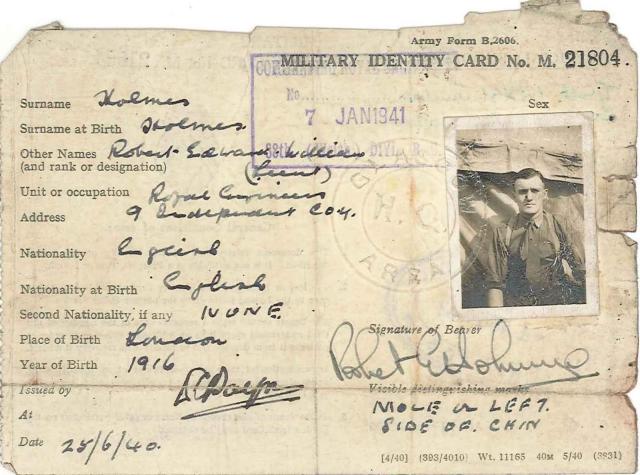 Army Form B,2606.
MILITARY IDENTITY CARD No. M. 21804.
No.
7 JAN 1941
DIV
Sex
Surname Holmes
Surname at Birth Holmes
Other Names Robert Edward William
(and rank or designation) (Lieut)
Unit or occupation Royal Engineers
Address 9 Independent Coy.
H. Q.
AREA
Nationality English
Nationality at Birth English
Second Nationality, if any NONE
Place of Birth London
Year of Birth 1916
Issued by
At
Date 25/6/40.
Signature of Bearer
Visible distinguishing marks
MOLE ON LEFT.
SIDE OF. CHIN
[4/40] (393/4010) Wt. 11165 40M 5/40 (3831)